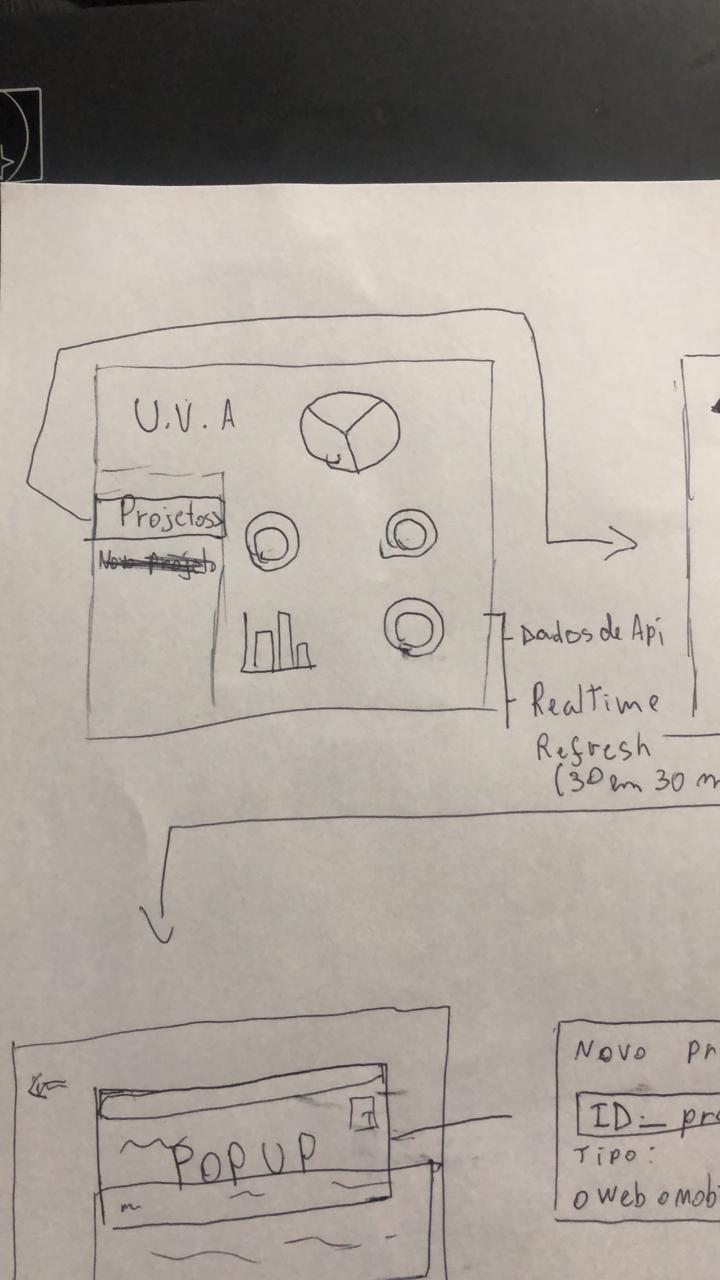 U.V.A
Projetos>
Novo projeto
Dados de Api
Realtime
Refresh
(30 em 30 m
Novo pr
ID:_ pro
POP UP
Tipo:
o Web o mob